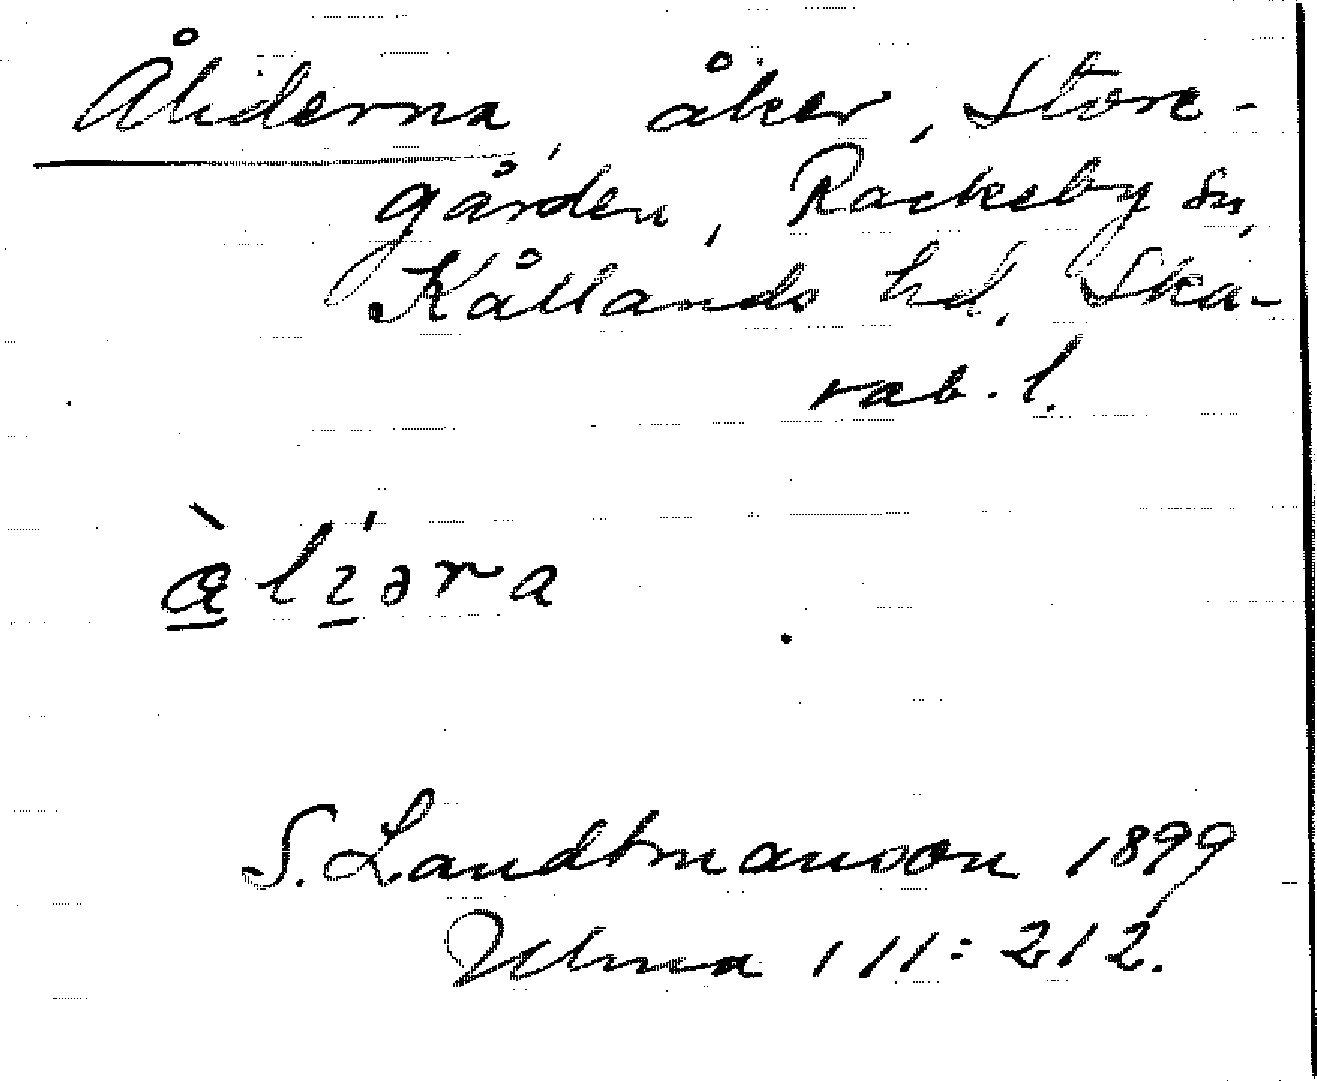 Åliderna, åker, Store-
gården, Rackeby sn,
Kållands hd, Ska-
rab. l.
àlíəra
S. Landtmanson 1899
Uluma 111: 212.